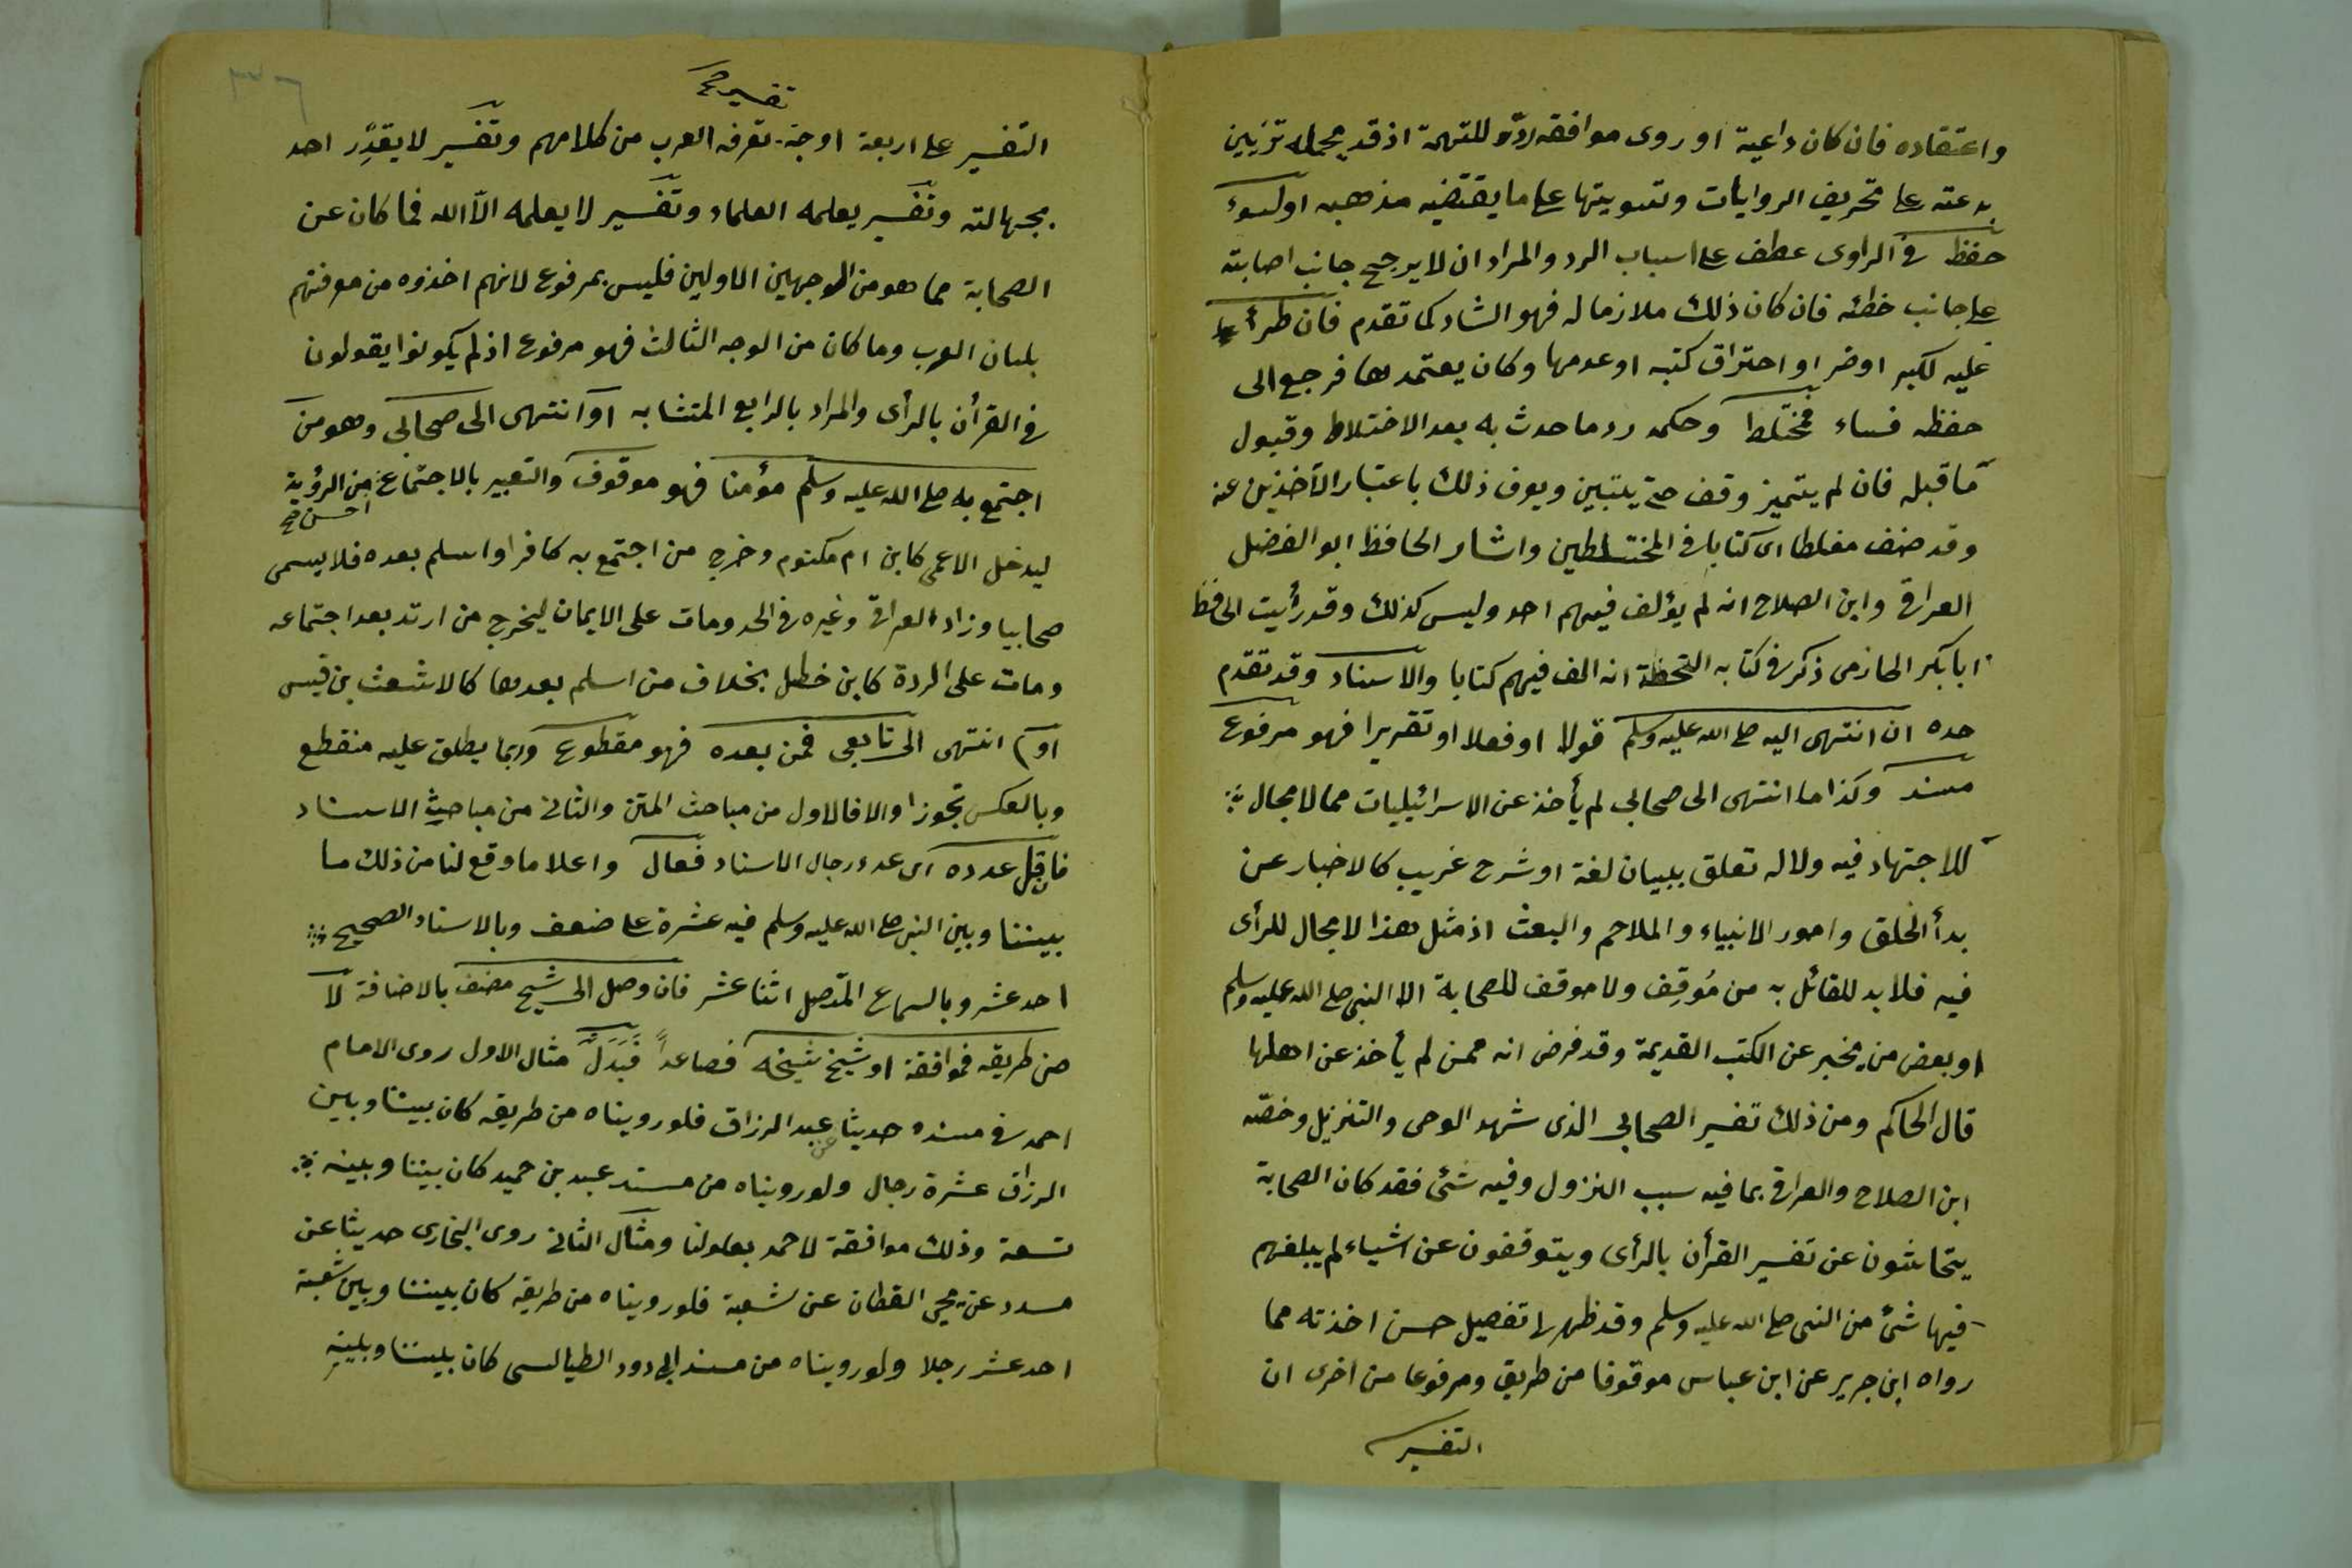 واعتقاده فان كان داعية او روى موافقه ردّ للتهمة اذ قد يحمله تزيين
بدعته على تحريف الروايات وتسويتها على ما يقتضيه مذهبه او لسوء
حفظ فى الراوى عطف على اسباب الرد والمراد ان لا يرجح جانب اصابته
على جانب خطئه فان كان ذلك ملازما له فهو الشاذ كما تقدم فان طرأ
عليه لكبر او ضر او احتراق كتبه او عدمها وكان يعتمدها فرجع الى
حفظه فساء فمختلط وحكمه رد ما حدث به بعد الاختلاط وقبول
ما قبله فان لم يتميز وقف حتى يتبين ويعرف ذلك باعتبار الآخذين عنه
وقد صنف مغلطاى كتابا فى المختلطين واشار الحافظ ابو الفضل
العراقى وابن الصلاح انه لم يؤلف فيهم احد وليس كذلك وقد رأيت الحافظ
ابا بكر الحازمى ذكر فى كتابه التحفظة انه الف فيهم كتابا والاسناد وقد تقدم
حده ان انتهى اليه صلى الله عليه وسلم قولا او فعلا او تقريرا فهو مرفوع
مسند وكذا ما انتهى الى صحابى لم يأخذ عن الاسرائيليات مما لا مجال
للاجتهاد فيه ولا له تعلق ببيان لغة او شرح غريب كالاخبار عن
بدأ الخلق وامور الانبياء والملاحم والبعث اذ مثل هذا لا مجال للرأى
فيه فلا بد للقائل به من مُوقِف ولا موقف للصحابة الا النبى صلى الله عليه وسلم
او بعض من يخبر عن الكتب القديمة وقد فرض انه ممن لم يأخذ عن اهلها
قال الحاكم ومن ذلك تفسير الصحابى الذى شهد الوحى والتنزيل وخصّه
ابن الصلاح والعراقى بما فيه سبب النزول وفيه شئ فقد كان الصحابة
يتحاشون عن تفسير القرأن بالرأى ويتوقفون عن اشياء لم يبلغهم
فيها شئ من النبى صلى الله عليه وسلم وقد ظهر لى تفصيل حسن اخذته مما
رواه ابن جرير عن ابن عباس موقوفا من طريق ومرفوعا من اخرى ان
التفسير
تفسير صح
التفسير على اربعة اوجه تعرفه العرب من كلامهم وتفسير لا يعذر احد
بجهالته وتفسير يعلمه العلماء وتفسير لا يعلمه الّا الله فما كان عن
الصحابة مما هو من الوجهين الاولين فليس بمرفوع لانهم اخذوه من معرفتهم
بلسان العرب وما كان من الوجه الثالث فهو مرفوع اذ لم يكونوا يقولون
فى القرأن بالرأى والمراد بالرابع المتشابه او انتهى الى صحابى وهو من
اجتمع به صلى الله عليه وسلم مؤمنا فهو موقوف والتعبير بالاجتماع من الرؤية
احسن صح
ليدخل الاعمى كابن ام مكتوم وخرج من اجتمع به كافرا واسلم بعده فلا يسمى
صحابيا وزاد العراقى وغيره فى الحد ومات على الايمان ليخرج من ارتد بعد اجتماعه
ومات على الردة كابن خطل بخلاف من اسلم بعدها كالاشعث بن قيس
او انتهى الى تابعى فمن بعده فهو مقطوع وربما يطلق عليه منقطع
وبالعكس تجوزا والا فالاول من مباحث المتن والثانى من مباحث الاسناد
فان قل عدده اى عدد رجال الاسناد فعال واعلا ما وقع لنا من ذلك ما
بيننا وبين النبى صلى الله عليه وسلم فيه عشرة على ضعف وبالاسناد الصحيح
احد عشر وبالسماع المتصل اثنا عشر فان وصل الى شيخ مصنف بالاضافة لا
من طريقه فموافقة او شيخ شيخه فصاعداً فَبَدَل مثال الاول روى الامام
احمد فى مسنده حديثا عن عبد الرزاق فلو رويناه من طريقه كان بيننا وبين
الرزاق عشرة رجال ولو رويناه من مسند عبد بن حميد كان بيننا وبينه
تسعة وذلك موافقة لاحمد بعلو لنا ومثال الثانى روى البخارى حديثا عن
مسدد عن يحيى القطان عن شعبة فلو رويناه من طريقه كان بيننا وبين شعبة
احد عشر رجلا ولو رويناه من مسند ابى دود الطيالسى كان بيننا وبينه